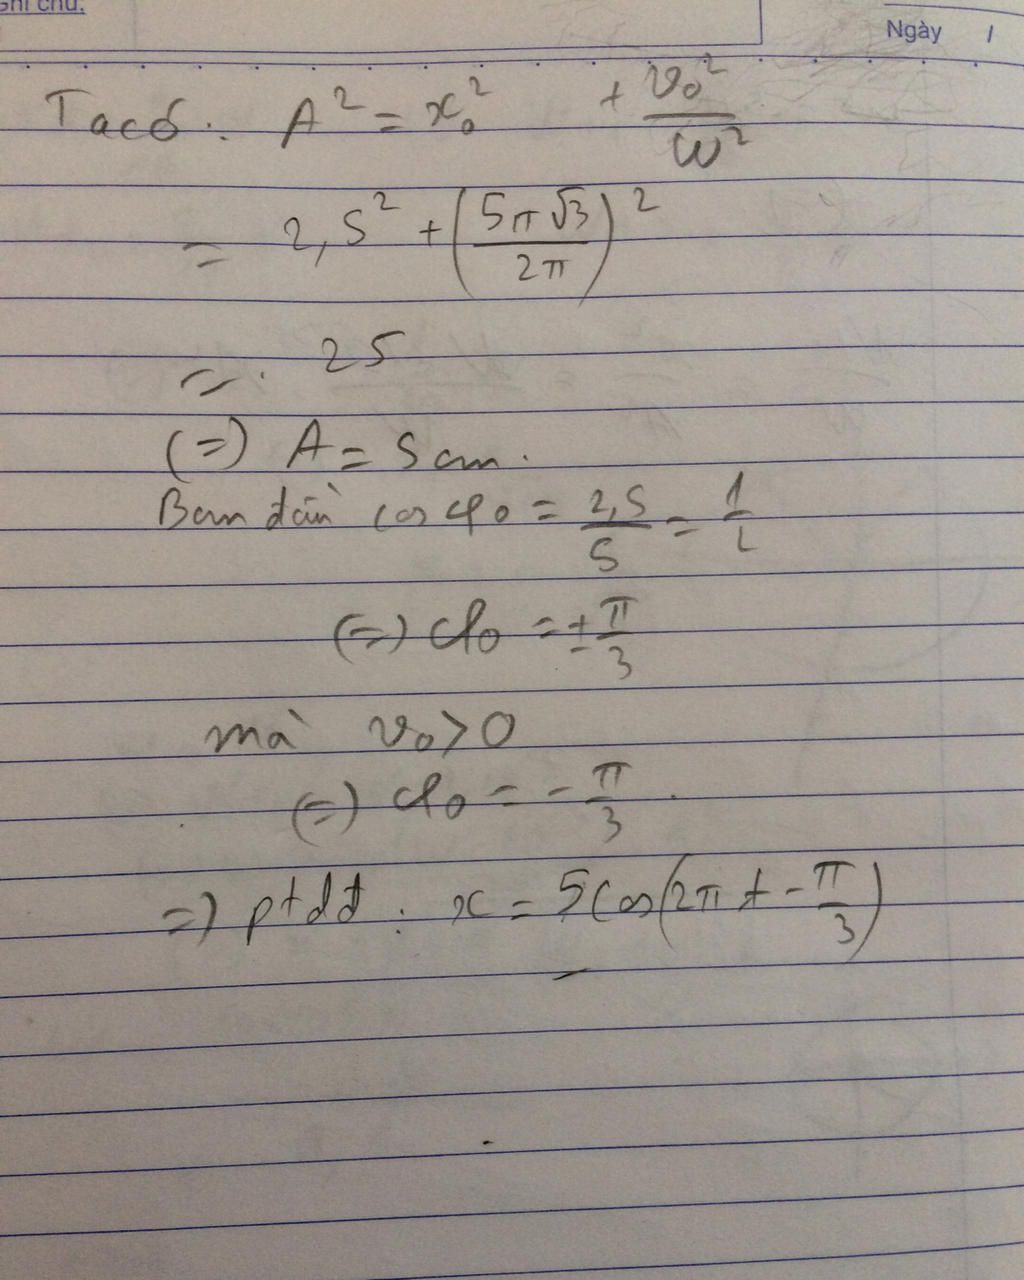 Ghi chú:
Ngày /
Ta có: A² = x₀² + v₀²/ω²
= 2,5² + (5π√3/2π)²
= 25
(=) A = 5 cm.
Ban đầu cos φ₀ = 2,5/5 = 1/2
(=) φ₀ = ± π/3
mà v₀ > 0
(=) φ₀ = - π/3.
=) ptdđ: x = 5cos(2πt - π/3)